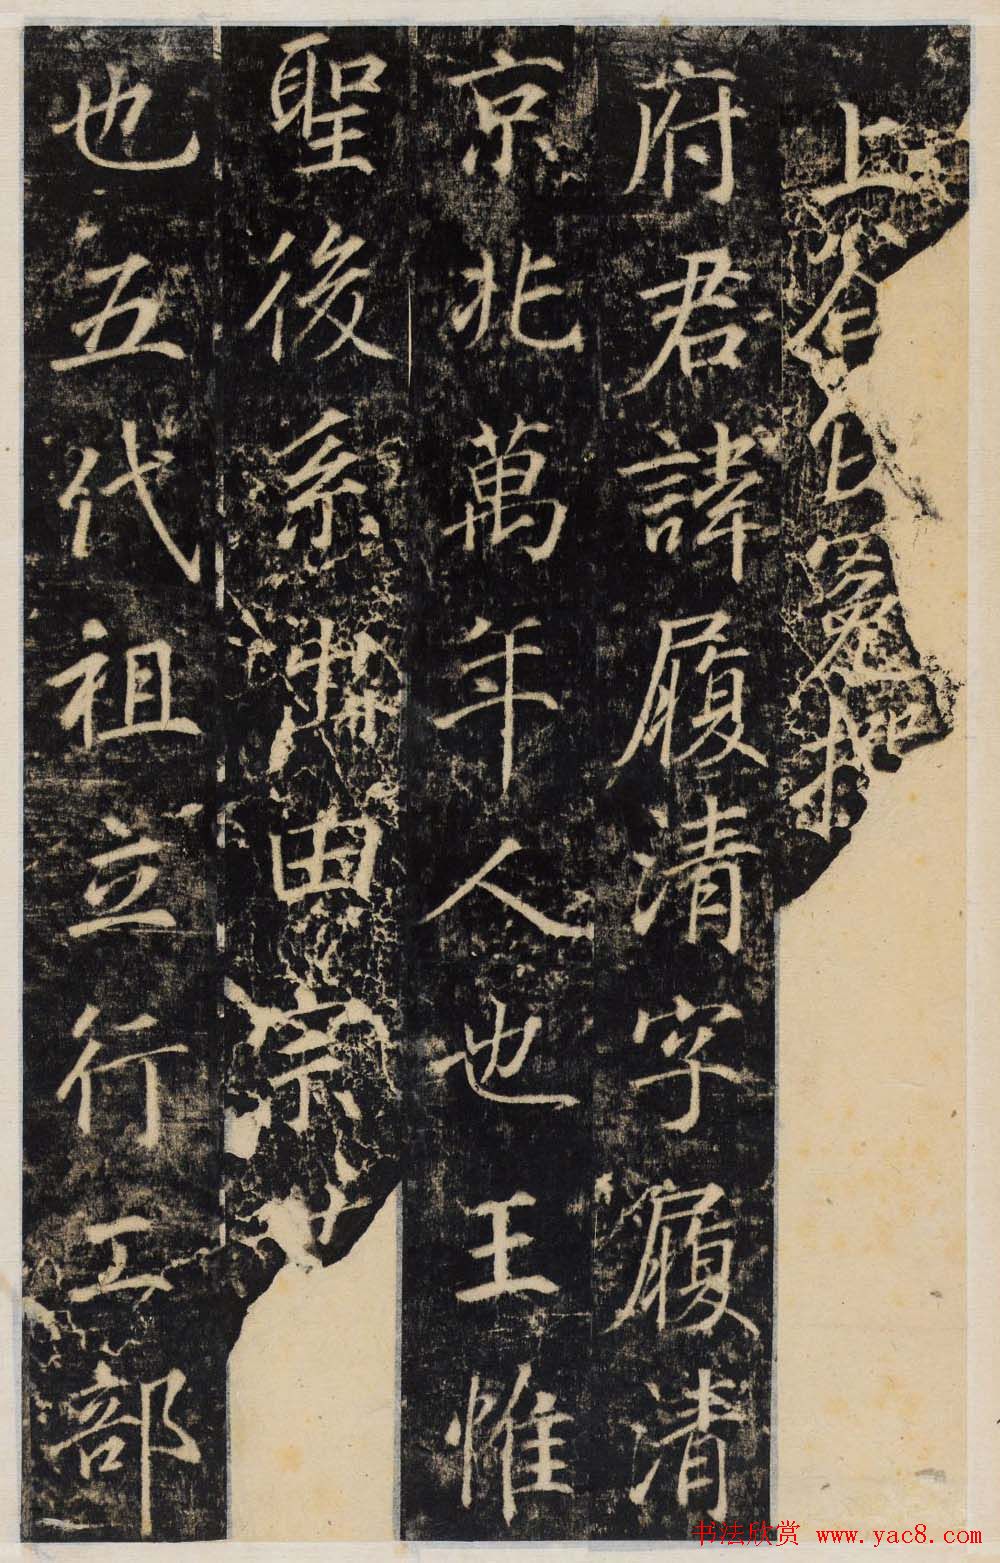 上
府君諱履清字履清
京兆萬年人也王惟
聖後系由宗
也五代祖立行工部
书法欣赏 www.yac8.com